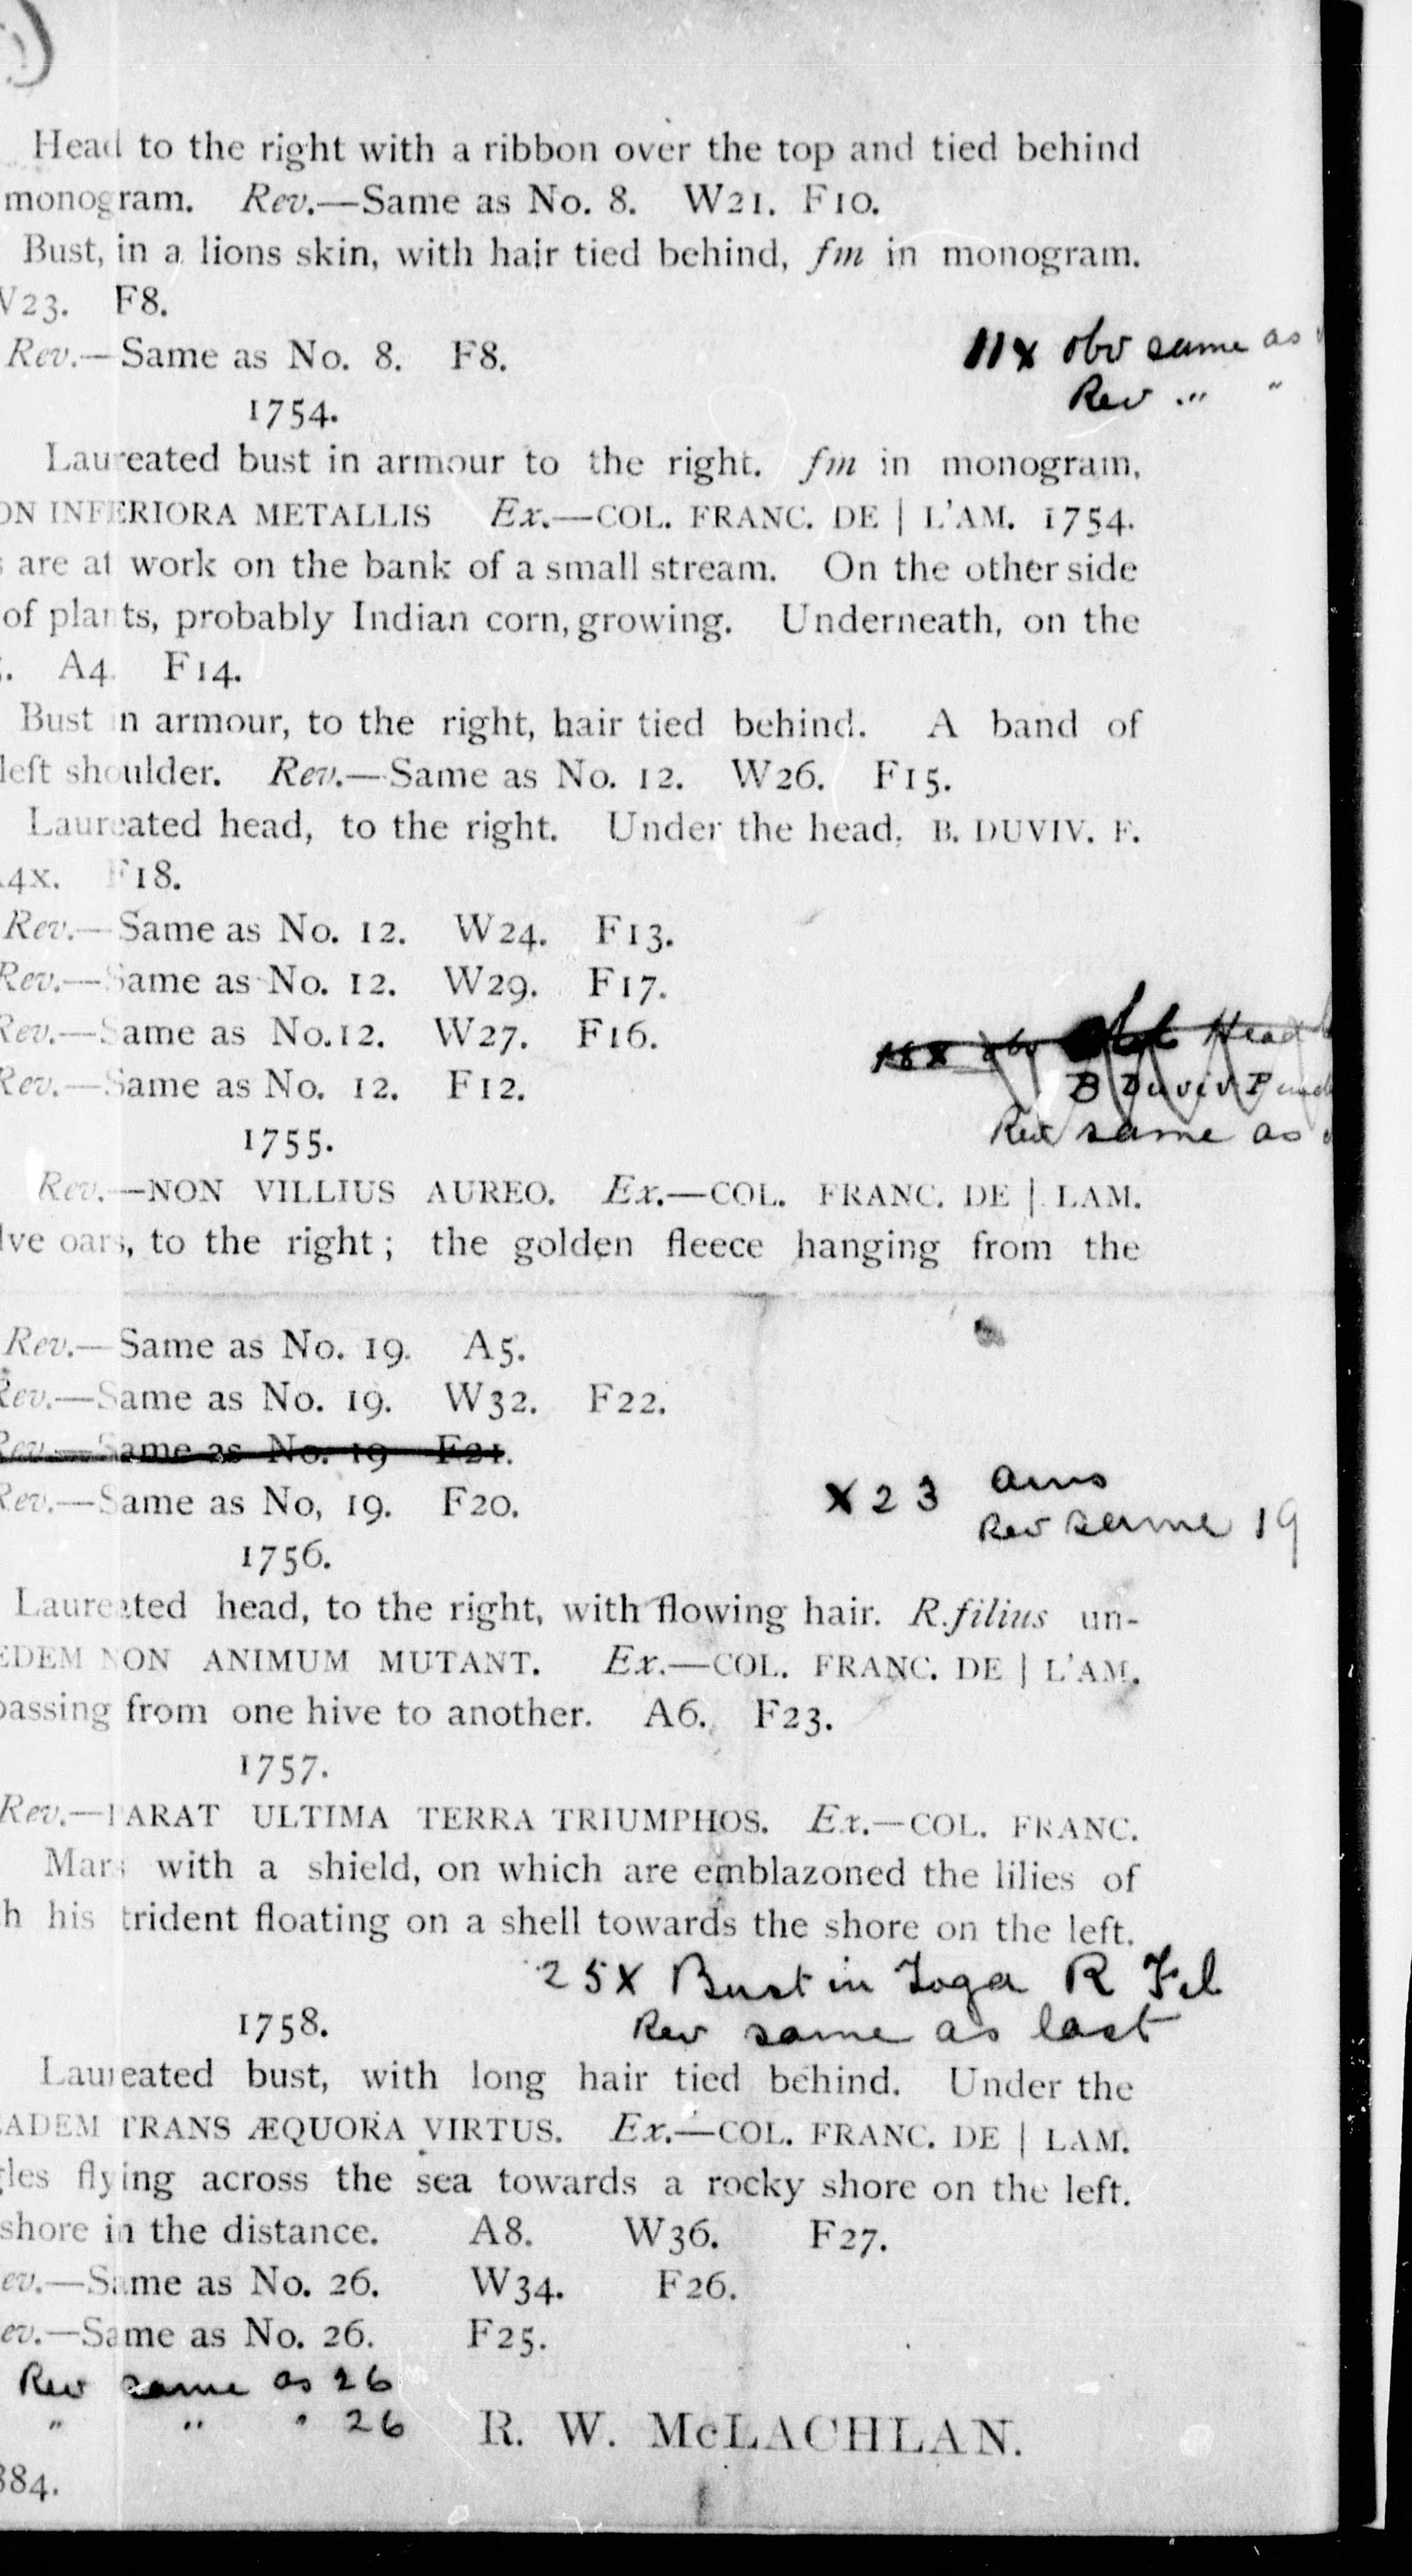 Head to the right with a ribbon over the top and tied behind
monogram. Rev.—Same as No. 8. W21. F10.
Bust, in a lions skin, with hair tied behind, fm in monogram.
W23. F8.
Rev.—Same as No. 8. F8.
11x obv same as
Rev " "
1754.
Laureated bust in armour to the right. fm in monogram,
ON INFERIORA METALLIS Ex.—COL. FRANC. DE | L'AM. 1754.
s are at work on the bank of a small stream. On the other side
of plants, probably Indian corn, growing. Underneath, on the
. A4. F14.
Bust in armour, to the right, hair tied behind. A band of
left shoulder. Rev.—Same as No. 12. W26. F15.
Laureated head, to the right. Under the head, B. DUVIV. F.
A4x. F18.
Rev.—Same as No. 12. W24. F13.
Rev.—Same as No. 12. W29. F17.
Rev.—Same as No.12. W27. F16.
18x obv Head
Rev.—Same as No. 12. F12.
B Duviv F und
Rev same as
1755.
Rev.—NON VILLIUS AUREO. Ex.—COL. FRANC. DE | LAM.
lve oars, to the right; the golden fleece hanging from the
Rev.—Same as No. 19. A5.
Rev.—Same as No. 19. W32. F22.
Rev.—Same as No. 19 F21.
Rev.—Same as No, 19. F20.
X23
Rev same 19
1756.
Laureated head, to the right, with flowing hair. R.filius un-
EDEM NON ANIMUM MUTANT. Ex.—COL. FRANC. DE | L'AM.
passing from one hive to another. A6. F23.
1757.
Rev.—PARAT ULTIMA TERRA TRIUMPHOS. Ex.—COL. FRANC.
Mars with a shield, on which are emblazoned the lilies of
h his trident floating on a shell towards the shore on the left.
25X Bust in Toga R Fil
Rev same as last
1758.
Laureated bust, with long hair tied behind. Under the
EADEM TRANS ÆQUORA VIRTUS. Ex.—COL. FRANC. DE | LAM.
gles flying across the sea towards a rocky shore on the left.
shore in the distance. A8. W36. F27.
ev.—Same as No. 26. W34. F26.
ev.—Same as No. 26. F25.
Rev same as 26
" " " 26
R. W. McLACHLAN.
884.